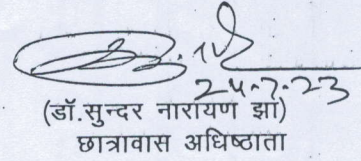 24-7-23
(डॉ.सुन्दर नारायण झा)
छात्रावास अधिष्ठाता